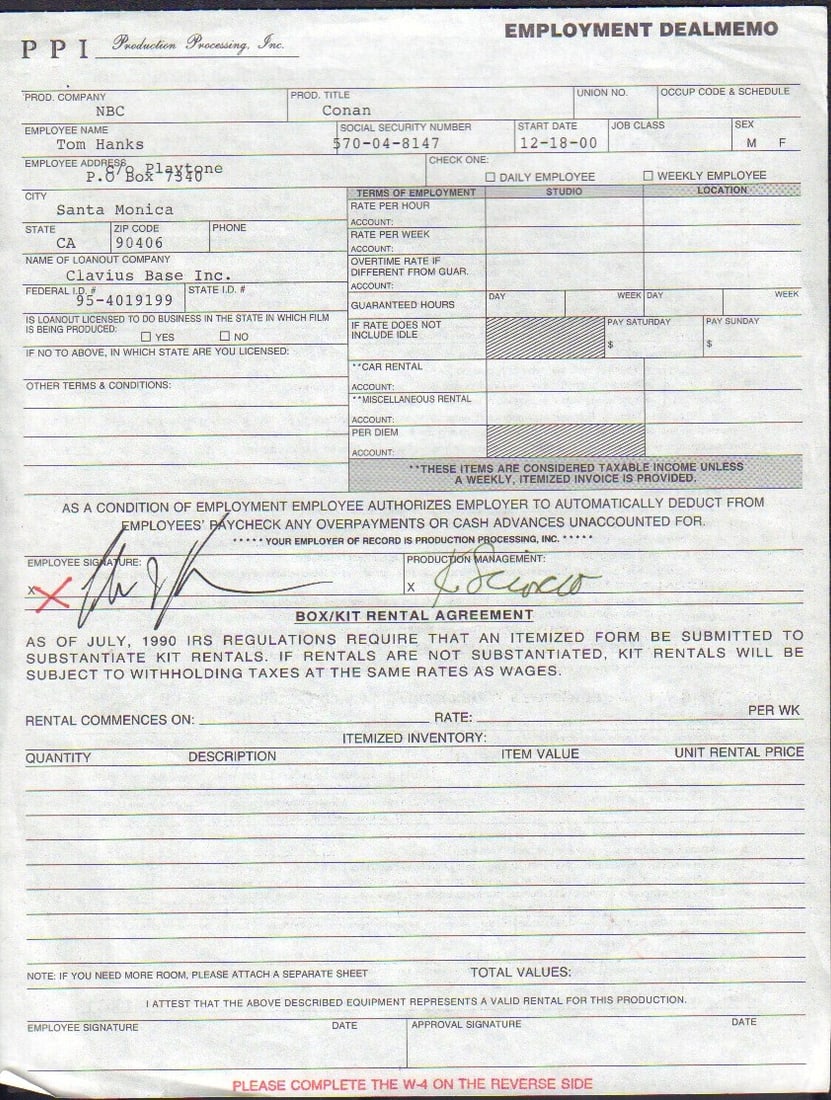 EMPLOYMENT DEALMEMO
PPI Production Processing, Inc.
PROD. COMPANY PROD. TITLE UNION NO. OCCUP CODE & SCHEDULE
NBC Conan
EMPLOYEE NAME SOCIAL SECURITY NUMBER START DATE JOB CLASS SEX
Tom Hanks [SSN omitted for privacy] 12-18-00 M F
EMPLOYEE ADDRESS CHECK ONE:
c/o Playtone
P.O Box 7340 DAILY EMPLOYEE WEEKLY EMPLOYEE
CITY TERMS OF EMPLOYMENT STUDIO LOCATION
Santa Monica RATE PER HOUR
ACCOUNT:
STATE ZIP CODE PHONE RATE PER WEEK
CA 90406 ACCOUNT:
NAME OF LOANOUT COMPANY OVERTIME RATE IF
Clavius Base Inc. DIFFERENT FROM GUAR.
FEDERAL I.D. # STATE I.D. # ACCOUNT:
95-4019199 GUARANTEED HOURS DAY WEEK DAY WEEK
IS LOANOUT LICENSED TO DO BUSINESS IN THE STATE IN WHICH FILM
IS BEING PRODUCED: YES NO
IF RATE DOES NOT PAY SATURDAY PAY SUNDAY
INCLUDE IDLE $ $
IF NO TO ABOVE, IN WHICH STATE ARE YOU LICENSED:
**CAR RENTAL
OTHER TERMS & CONDITIONS: ACCOUNT:
**MISCELLANEOUS RENTAL
ACCOUNT:
PER DIEM
ACCOUNT:
**THESE ITEMS ARE CONSIDERED TAXABLE INCOME UNLESS
A WEEKLY, ITEMIZED INVOICE IS PROVIDED.
AS A CONDITION OF EMPLOYMENT EMPLOYEE AUTHORIZES EMPLOYER TO AUTOMATICALLY DEDUCT FROM
EMPLOYEES' PAYCHECK ANY OVERPAYMENTS OR CASH ADVANCES UNACCOUNTED FOR.
*****YOUR EMPLOYER OF RECORD IS PRODUCTION PROCESSING, INC.*****
EMPLOYEE SIGNATURE: PRODUCTION MANAGEMENT:
X X
BOX/KIT RENTAL AGREEMENT
AS OF JULY, 1990 IRS REGULATIONS REQUIRE THAT AN ITEMIZED FORM BE SUBMITTED TO
SUBSTANTIATE KIT RENTALS. IF RENTALS ARE NOT SUBSTANTIATED, KIT RENTALS WILL BE
SUBJECT TO WITHHOLDING TAXES AT THE SAME RATES AS WAGES.
RENTAL COMMENCES ON: RATE: PER WK
ITEMIZED INVENTORY:
QUANTITY DESCRIPTION ITEM VALUE UNIT RENTAL PRICE
NOTE: IF YOU NEED MORE ROOM, PLEASE ATTACH A SEPARATE SHEET TOTAL VALUES:
I ATTEST THAT THE ABOVE DESCRIBED EQUIPMENT REPRESENTS A VALID RENTAL FOR THIS PRODUCTION.
EMPLOYEE SIGNATURE DATE APPROVAL SIGNATURE DATE
PLEASE COMPLETE THE W-4 ON THE REVERSE SIDE